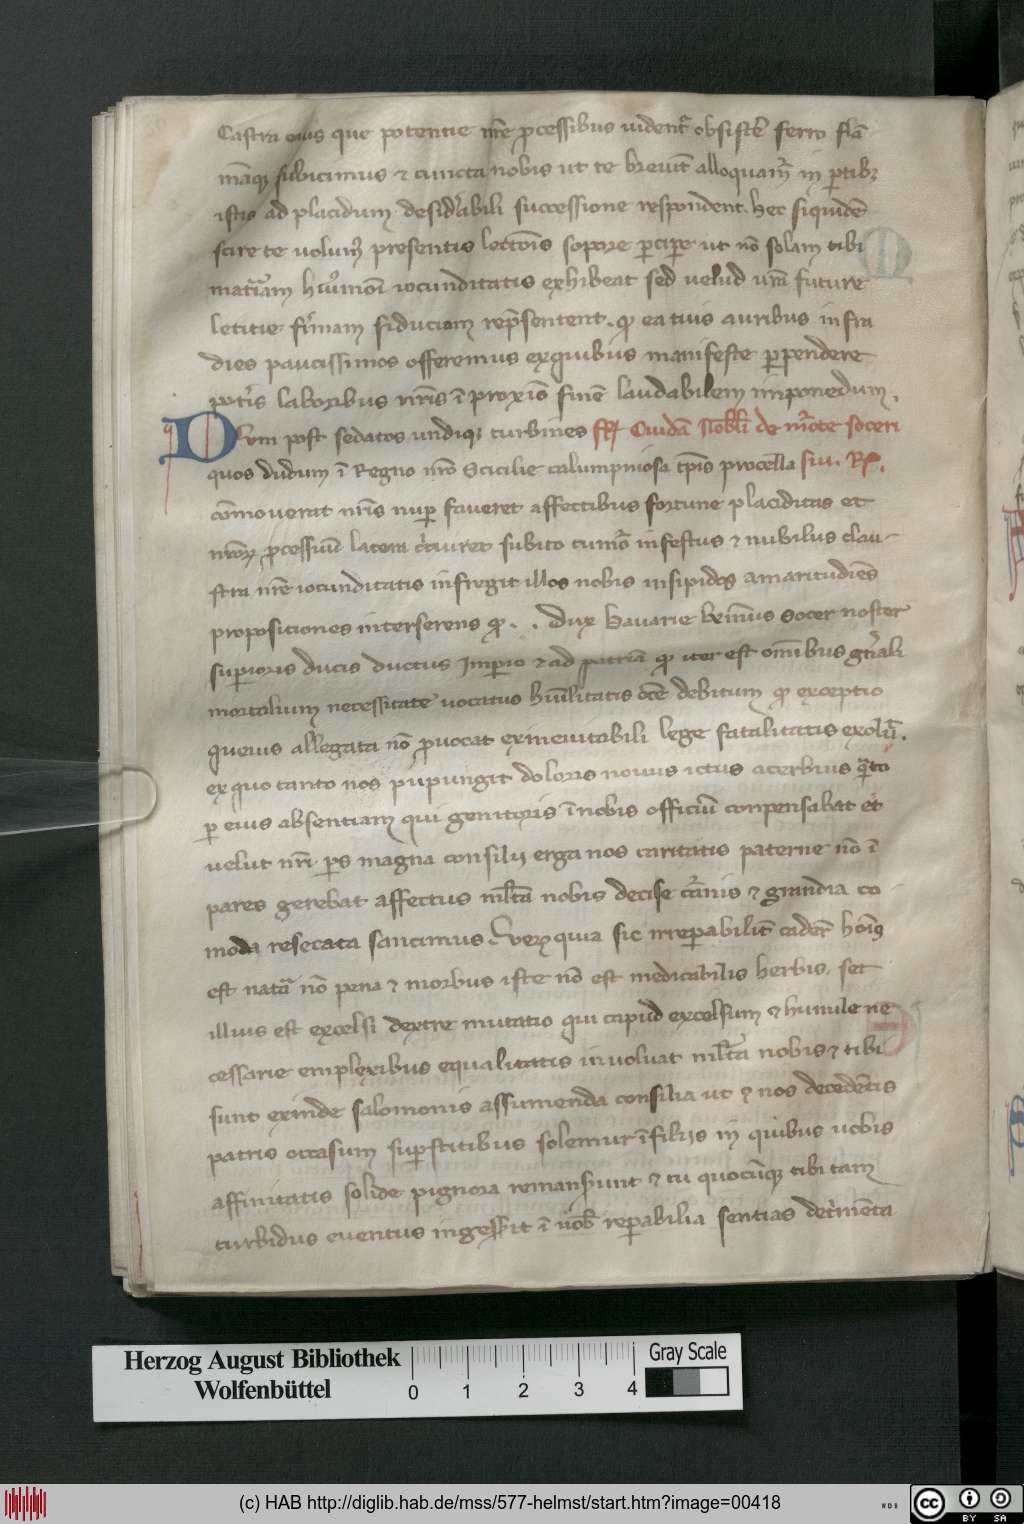 Castra eius que potentie nr̄e ꝓcessibus uident᷑ obsiste᷑ ferro flā
māqꝫ subicimus ⁊ cuncta nobis ut te breuit᷑ alloquam᷑ in ꝑtibꝫ
istis ad placidum desid᷑abili successione respondent. hec siquidē
scire te uolum᷒ presentis lectōis sopore ꝑciꝑe ut nō solam tibi
mat᷑iam iocunditatis exhibeat sed uelud ur̄am future
letitie firmam fiduciam rep̄sentent. ea tuis auribus infra
dies paucissimos offeremus ex quibus manifeste ꝑpendere
pot᷑is laboribus nr̄is ī proxīo finē laudabilem imponendum.
Dum post sedatos undiqꝫ turbines Cuidā Nobili de morte soceri
quos dudum ī Regno nr̄o Scicilie calumpniosa tp̄is procella siu. Rx.
cōmouerat nr̄is nuꝑ faueret affectibus fortune placiditas et
nr̄oꝝ ꝓcessuū latera subito tumor infestus ⁊ nubilus clau-
stra nr̄e iocunditatis infregit illos nobis insipidos amaritudīes
proposiciones interserens ꝙ . . dux bauarie socer noster
suꝑioris ducis ductus Imꝑio ⁊ ad patriā ꝙ iter est omībus gn̄ali
mortalium necessitate uocatus hūilitatis debitum ꝙ exceptio
queuis allegata nō ꝓuocat exineuitabili lege fatalitatis exolu᷑.
ex quo tanto nos pupungit doloris nouus ictus acerbius q̄to
ꝑ eius absentiam qui genitoris ī nobis officiū conpensabat et
velut nr̄i ꝑs magna consilij erga nos caritatis paterne nō ī
pares gerebat affectus ml̄ta nobis decise ⁊ grandia co
moda resecata sancimus. Veꝝ quia sic irreꝑabilit᷑ cadēt hoīs
est natā nō pena ⁊ morbus iste nō est medicabilis herbis. set
illius est excelsi dextre mutatio qui capud excelsum ⁊ humile ne
cessarie emplexibus equalitatis inuoluat ml̄ta nobis ⁊ tibi
sunt exinde salomonis assumenda consilia ut ⁊ nos decedētis
patris occasum suꝑstitibus solemur ī filijs in quibus uobis
affinitatis solide pignora remanserunt ⁊ tu quocūqꝫ tibi tam
turbidus euentus ingesserit ī reꝑabilia sentias det᷑mēta
Herzog August Bibliothek
Wolfenbüttel
0 1 2 3 4
Gray Scale
(c) HAB http://diglib.hab.de/mss/577-helmst/start.htm?image=00418
WDB
cc BY SA